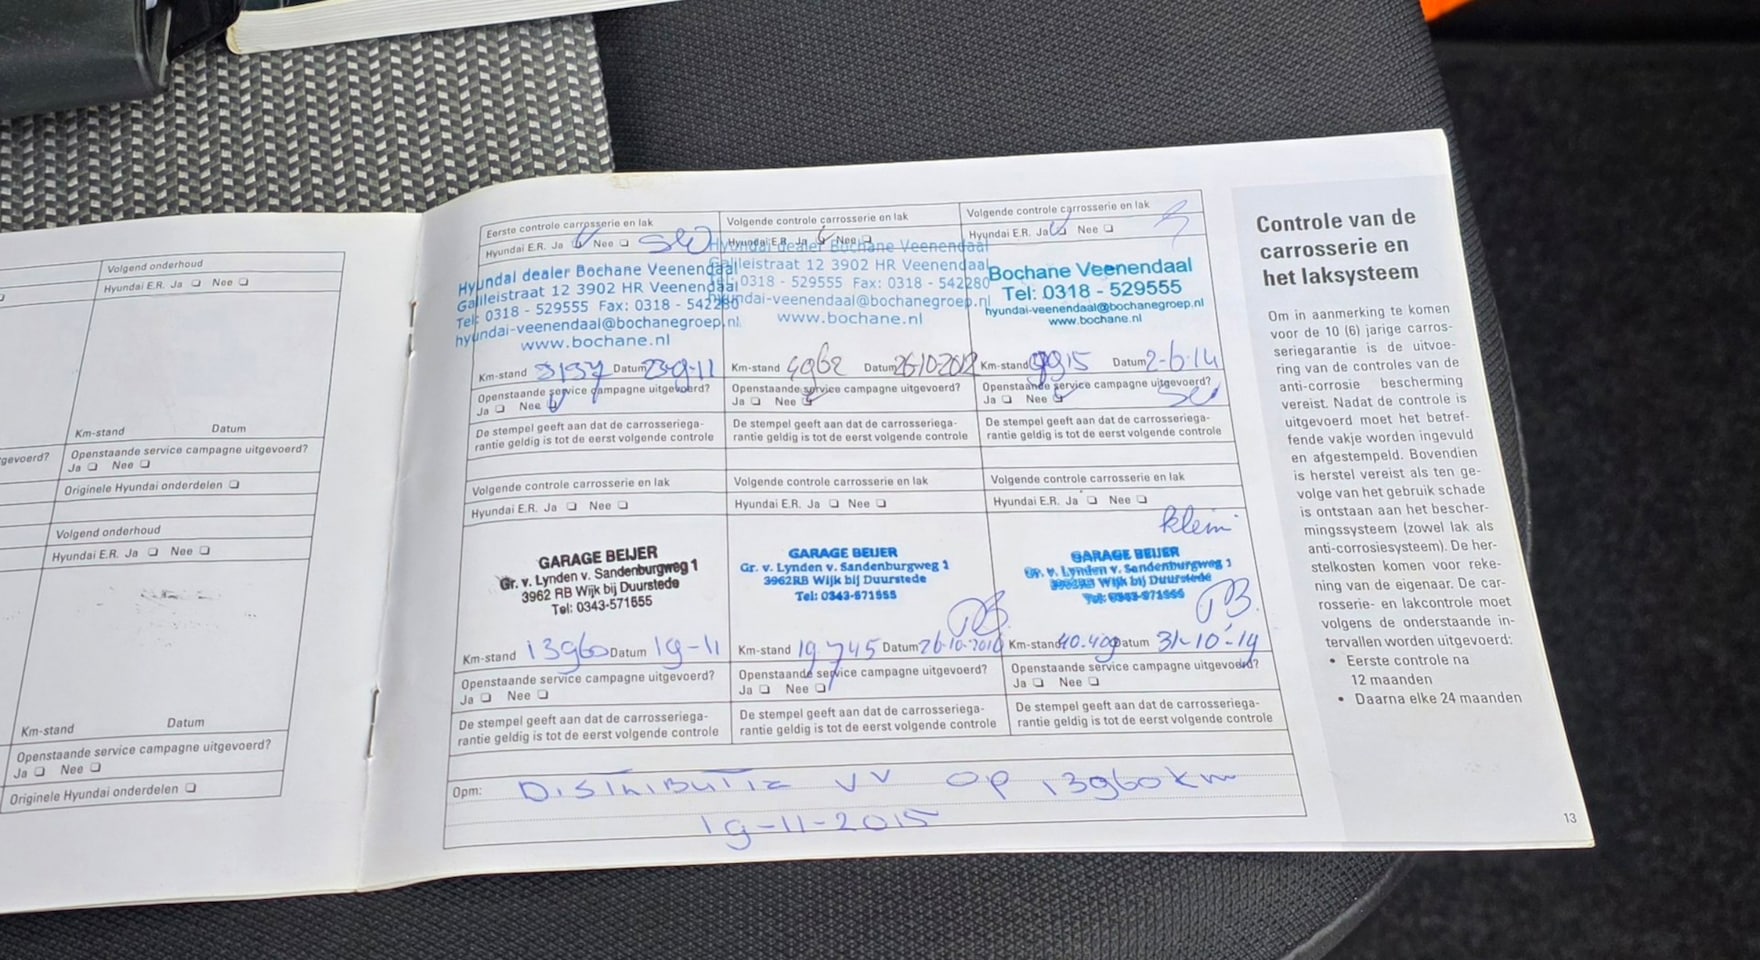 Volgend onderhoud
Hyundai E.R. Ja ❏ Nee ❏
Km-stand Datum
gevoerd?
Openstaande service campagne uitgevoerd?
Ja ❏ Nee ❏
Originele Hyundai onderdelen ❏
Volgend onderhoud
Hyundai E.R. Ja ❏ Nee ❏
Km-stand Datum
Openstaande service campagne uitgevoerd?
Ja ❏ Nee ❏
Originele Hyundai onderdelen ❏
Eerste controle carrosserie en lak
Hyundai E.R. Ja ❏ Nee ❏
Hyundai dealer Bochane Veenendaal
Galileistraat 12 3902 HR Veenendaal
Tel: 0318 - 529555 Fax: 0318 - 542280
hyundai-veenendaal@bochanegroep.nl
www.bochane.nl
Km-stand Datum 23-9-11
Openstaande service campagne uitgevoerd?
Ja ❏ Nee ❏
De stempel geeft aan dat de carrosseriega-
rantie geldig is tot de eerst volgende controle
Volgende controle carrosserie en lak
Hyundai E.R. Ja ❏ Nee ❏
Hyundai dealer Bochane Veenendaal
Galileistraat 12 3902 HR Veenendaal
Tel: 0318 - 529555 Fax: 0318 - 542280
hyundai-veenendaal@bochanegroep.nl
www.bochane.nl
Km-stand 4962 Datum 26-10-2012
Openstaande service campagne uitgevoerd?
Ja ❏ Nee ❏
De stempel geeft aan dat de carrosseriega-
rantie geldig is tot de eerst volgende controle
Volgende controle carrosserie en lak
Hyundai E.R. Ja ❏ Nee ❏
Bochane Veenendaal
Tel: 0318 - 529555
hyundai-veenendaal@bochanegroep.nl
www.bochane.nl
Km-stand 9915 Datum 2-6-14
Openstaande service campagne uitgevoerd?
Ja ❏ Nee ❏
De stempel geeft aan dat de carrosseriega-
rantie geldig is tot de eerst volgende controle
Volgende controle carrosserie en lak
Hyundai E.R. Ja ❏ Nee ❏
GARAGE BEIJER
Gr. v. Lynden v. Sandenburgweg 1
3962 RB Wijk bij Duurstede
Tel: 0343-571555
Km-stand 13960 Datum 19-11
Openstaande service campagne uitgevoerd?
Ja ❏ Nee ❏
De stempel geeft aan dat de carrosseriega-
rantie geldig is tot de eerst volgende controle
Volgende controle carrosserie en lak
Hyundai E.R. Ja ❏ Nee ❏
GARAGE BEIJER
Gr. v. Lynden v. Sandenburgweg 1
3962RB Wijk bij Duurstede
Tel: 0343-571555
Km-stand 19745 Datum 26-10-2016
Openstaande service campagne uitgevoerd?
Ja ❏ Nee ❏
De stempel geeft aan dat de carrosseriega-
rantie geldig is tot de eerst volgende controle
Volgende controle carrosserie en lak
Hyundai E.R. Ja ❏ Nee ❏
klein
GARAGE BEIJER
Gr. v. Lynden v. Sandenburgweg 1
3962RB Wijk bij Duurstede
Tel: 0343-571555
Km-stand 40.409 Datum 31-10-19
Openstaande service campagne uitgevoerd?
Ja ❏ Nee ❏
De stempel geeft aan dat de carrosseriega-
rantie geldig is tot de eerst volgende controle
Opm: Distributie VV op 13960 km
19-11-2015
Controle van de
carrosserie en
het laksysteem
Om in aanmerking te komen
voor de 10 (6) jarige carros-
seriegarantie is de uitvoe-
ring van de controles van de
anti-corrosie bescherming
vereist. Nadat de controle is
uitgevoerd moet het betref-
fende vakje worden ingevuld
en afgestempeld. Bovendien
is herstel vereist als ten ge-
volge van het gebruik schade
is ontstaan aan het bescher-
mingssysteem (zowel lak als
anti-corrosiesysteem). De her-
stelkosten komen voor reke-
ning van de eigenaar. De car-
rosserie- en lakcontrole moet
volgens de onderstaande in-
tervallen worden uitgevoerd:
• Eerste controle na
12 maanden
• Daarna elke 24 maanden
13